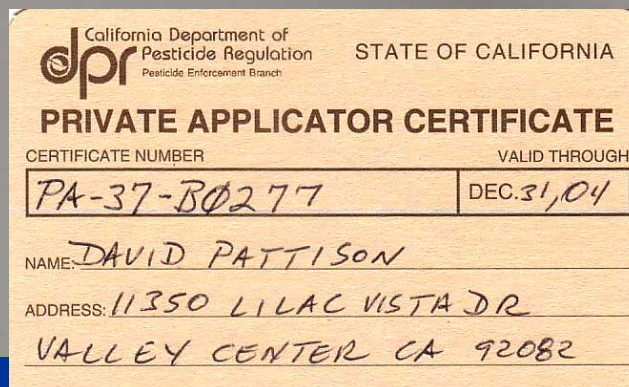 California Department of
dpr Pesticide Regulation
Pesticide Enforcement Branch
STATE OF CALIFORNIA
PRIVATE APPLICATOR CERTIFICATE
CERTIFICATE NUMBER VALID THROUGH
PA-37-BØ277 DEC.31,04
NAME: DAVID PATTISON
ADDRESS: 11350 LILAC VISTA DR
VALLEY CENTER CA 92082